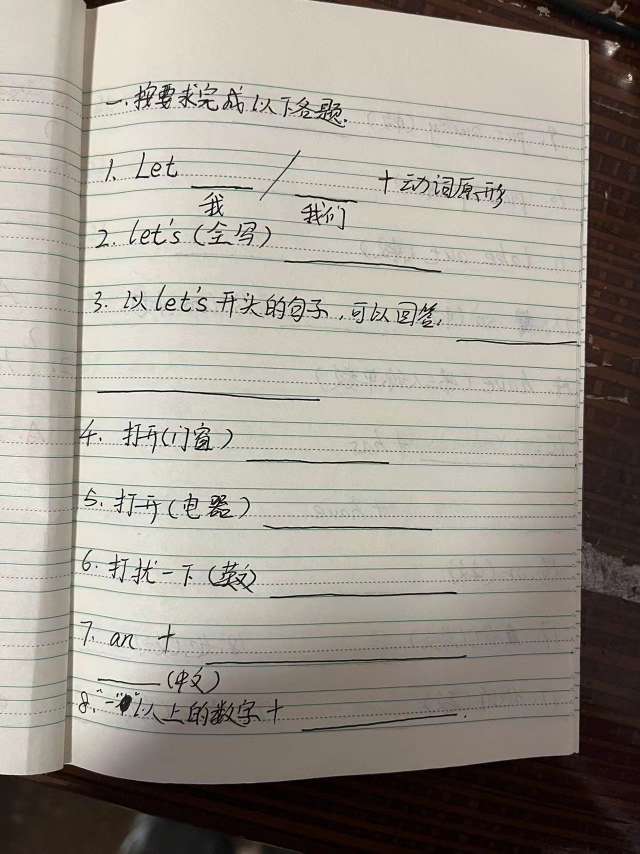 一.按要求完成以下各题.
1. Let ____ / ____ +动词原形
我 我们
2. let's (全写) ________
3. 以let's开头的句子,可以回答: ________
________
4. 打开(门窗) ________
5. 打开(电器) ________
6. 打扰一下(英文) ________
7. an + ________
____(中文)
8. "一"以上的数字+ ________.